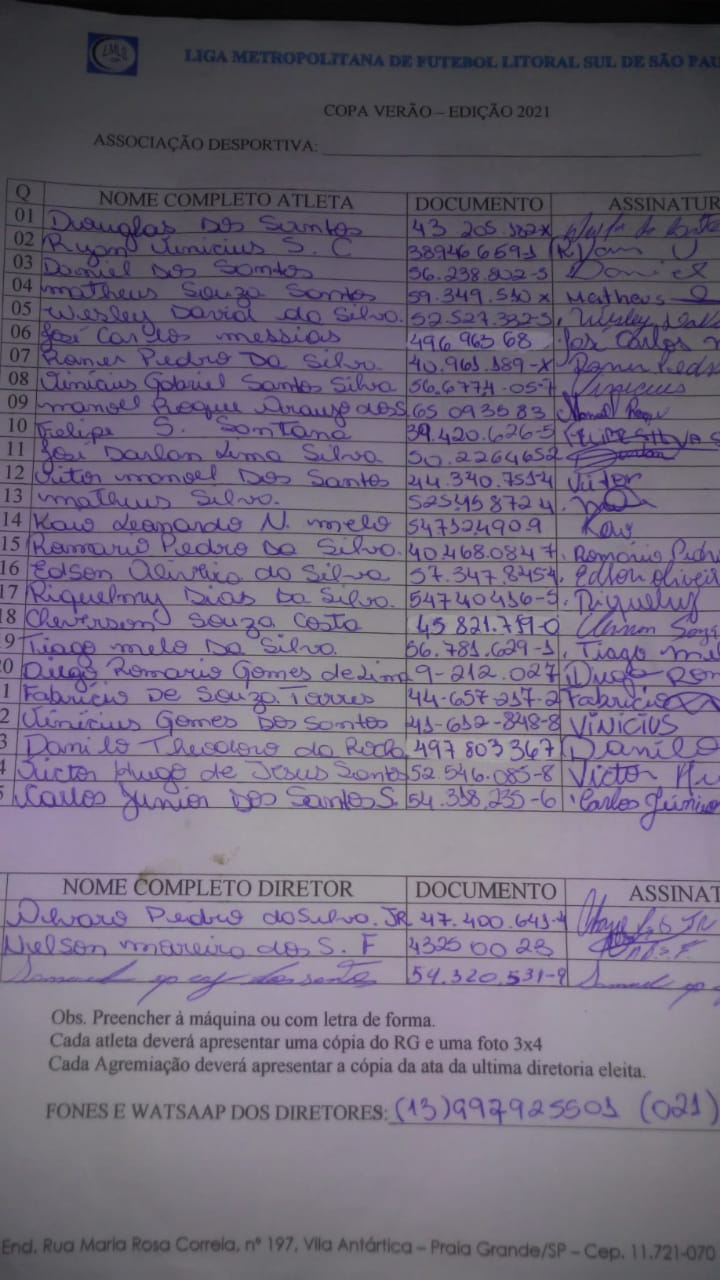 LMFLS
LIGA METROPOLITANA DE FUTEBOL LITORAL SUL DE SÃO PAU
COPA VERÃO – EDIÇÃO 2021
ASSOCIAÇÃO DESPORTIVA:
Q NOME COMPLETO ATLETA DOCUMENTO ASSINATUR
01 Douglas Dos Santos 43 205 182x
02 Ryan Vinicius S. C 389466591 Ryan V
03 Daniel Dos Santos 56.238.802-5 Daniel
04 matheus Souza Santos 59.349.510 x Matheus
05 Wesley David da Silva. 52.527.332-5, Wesley
06 José Carlos messias 496 963 68 José Carlos m
07 Romer Pedro Da Silva 40.961.189-x Romer Pedr
08 Vinicius Gabriel Santos Silva 56.6771.05-7 Vinicius
09 manoel Roque Araujo dos S. 65 093583 Manoel Roqu
10 Felipe S. Santana 39.420.626-5
11 José Darlan Lima Silva 50.2264652
12 Vitor manoel Dos Santos 44.340.751-4 Vitor
13 matheus Silva. 525458724.
14 Kaio Leonardo N. melo 547324909 Kaio
15 Romario Pedro Da Silva. 40.468.0847. Romário Pedr
16 Edson Oliveira da Silva 57.347.8454. Edson oliveir
17 Riquelmy Dias Da Silva. 54740416-5. Riquelmy
18 Cheverson Souza Costa 45 821.751-0
9 Tiago melo Da Silva. 56.781.629-1. Tiago mel
20 Diego Romario Gomes de Lima 9-212.027 Diego Rom
1 Fabricio De Souza Torres 44-657-217-2 Fabricio
2 Vinicius Gomes Dos Santos 41-612-848-8 VINICIUS
3 Danilo Theodoro da Rocha 497 803 367 Danilo
4 Victor Hugo de Jesus Santos 52.546.085-8 Victor Hu
5 Carlos Junior Dos Santos S. 54.318.235-6 Carlos Júnior
NOME COMPLETO DIRETOR DOCUMENTO ASSINAT
Alvaro Pedro da Silva. JR 47.400.641-4
Nielson moreira dos S. F 4325 00 23
Samuel dos santos 54.320.531-9 Samuel
Obs. Preencher à máquina ou com letra de forma.
Cada atleta deverá apresentar uma cópia do RG e uma foto 3x4
Cada Agremiação deverá apresentar a cópia da ata da ultima diretoria eleita.
FONES E WATSAAP DOS DIRETORES: (13)997925501 (021)
End. Rua Maria Rosa Correia, nº 197, Vila Antártica – Praia Grande/SP – Cep. 11.721-070